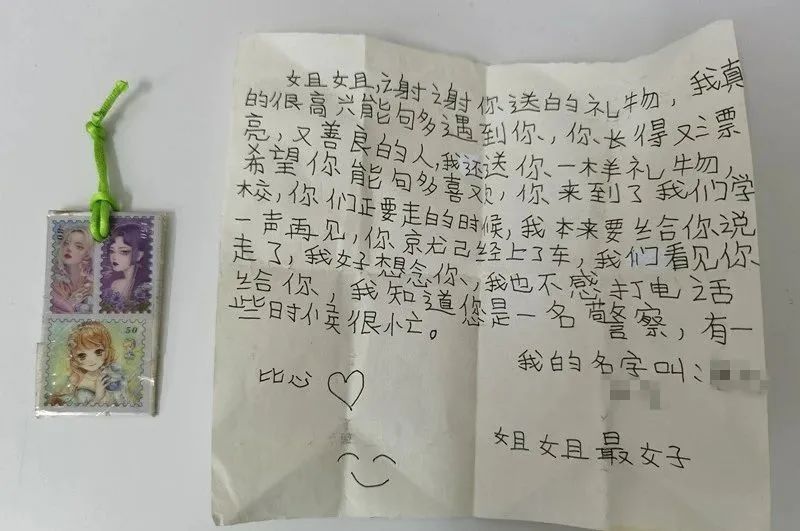 50
50
50
姐姐,谢谢你送的礼物,我真
的很高兴能句多遇到你,你长得又漂
亮,又善良的人,我还送你一样礼物,
希望你能句多喜欢,你来到了我们学
校,你们正要走的时候,我本来要给你说
一声再见,你京尤已经上了车,我们看见你
走了,我好想念你,我也不感打电话
给你,我知道您是一名警察,有一
些时候很忙。
我的名字叫:
比心
姐姐最好